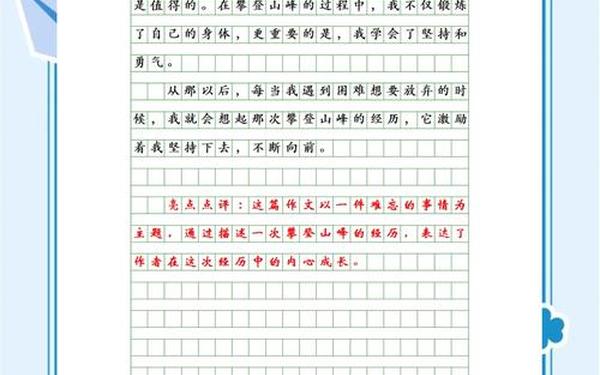 是值得的。在攀登山峰的过程中，我不仅锻炼
了自己的身体，更重要的是，我学会了坚持和
勇气。
从那以后，每当我遇到困难想要放弃的时
候，我就会想起那次攀登山峰的经历，它激励
着我坚持下去，不断向前。
亮点点评：这篇作文以一件难忘的事情为
主题，通过描述一次攀登山峰的经历，表达了
作者在这次经历中的内心成长。